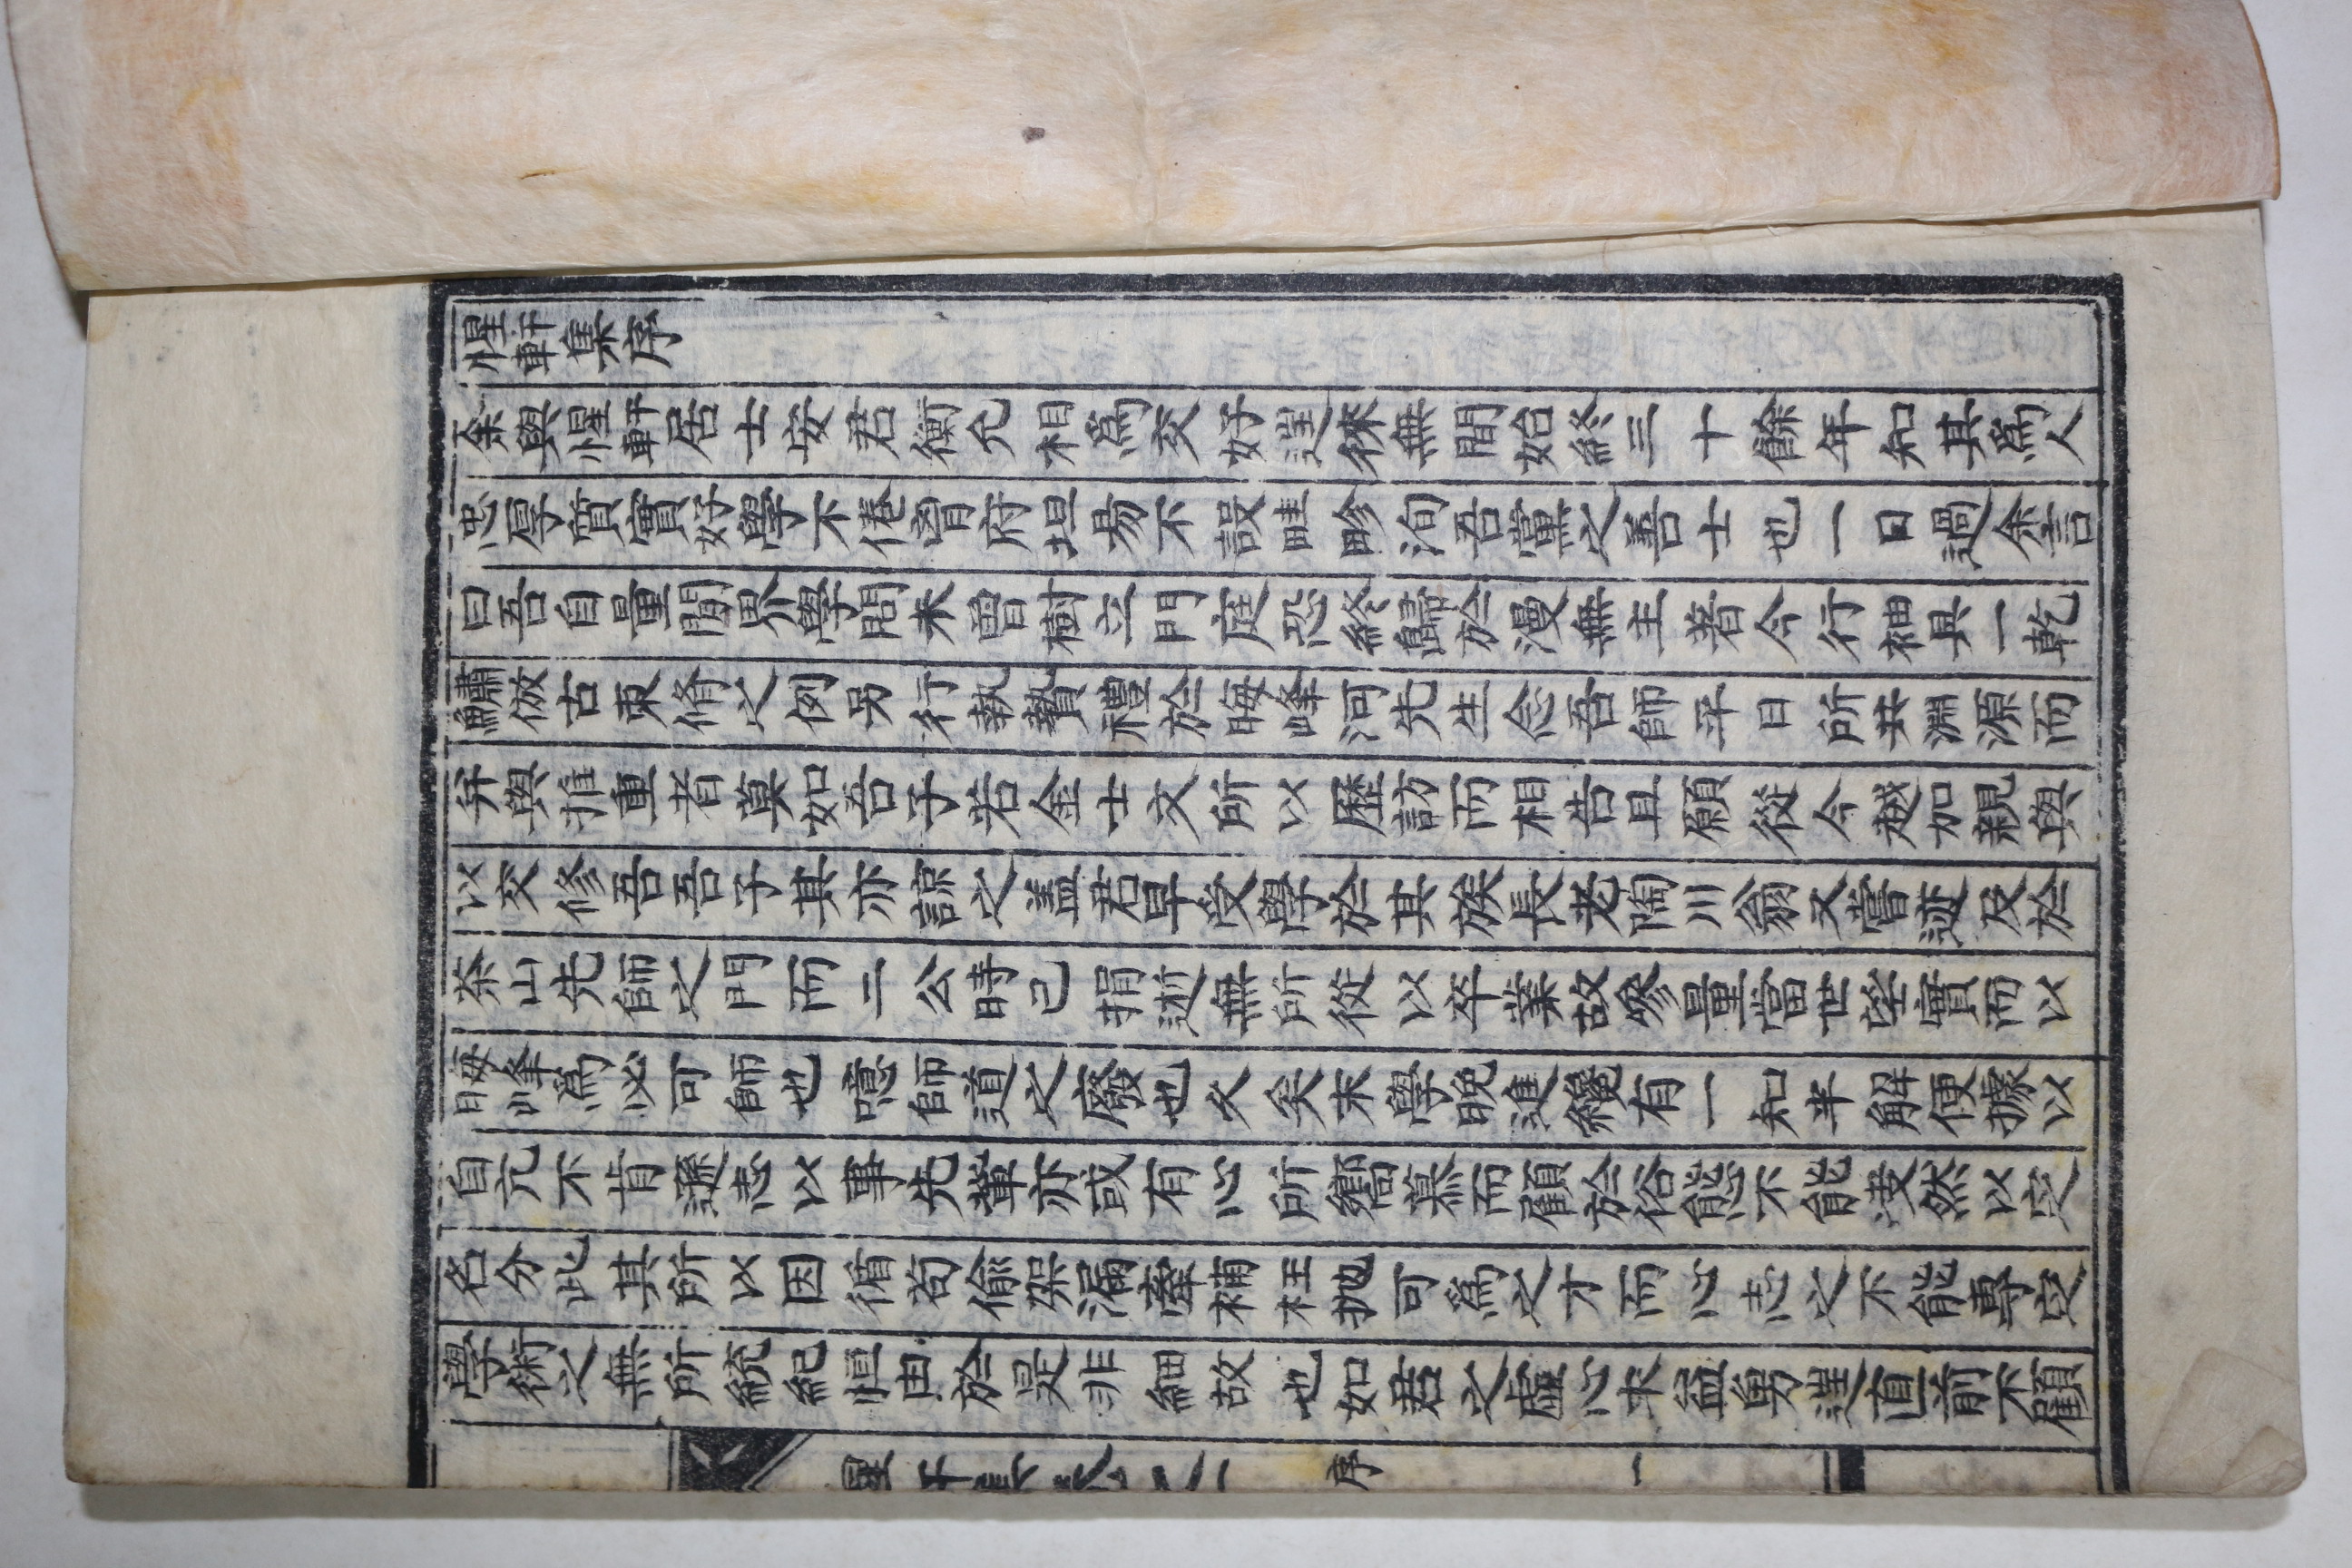 惺軒集序
余與惺軒居士安君衡允相爲交好迬徠無間始終三十餘年知其爲人
忠厚質實好學不倦胷府坦易不設畦畛洵吾黨之善士也一日過余言
曰吾自量聞界學問未曾樹立門庭恐終歸於漫無主著今行袖具一乾
鱐倣古束脩之例另行執贄禮於晦峰河先生念吾師平日所共淵源而
幷與推重者莫如吾子若金士文所以歷訪而相告且願從今越加親與
以交修吾吾子其亦諒之盖君早受學於其族長老陶川翁又嘗迹及於
茶山先師之門而二公時已捐逝無所從以卒業故參量當世望實而以
晦峰爲必可師也噫師道之廢也久矣末學晚進纔有一知半解便據以
自亢不肯遜志以事先輩亦或有心所嚮慕而顧於俗態不能凌然以定
名分此其所以因循苟偷架漏牽補枉抛可爲之才而心志之不能專定
學術之無所統紀恒由於是非細故也如君之虛心求益勇迬直前不顧
惺軒集卷之一 序 一